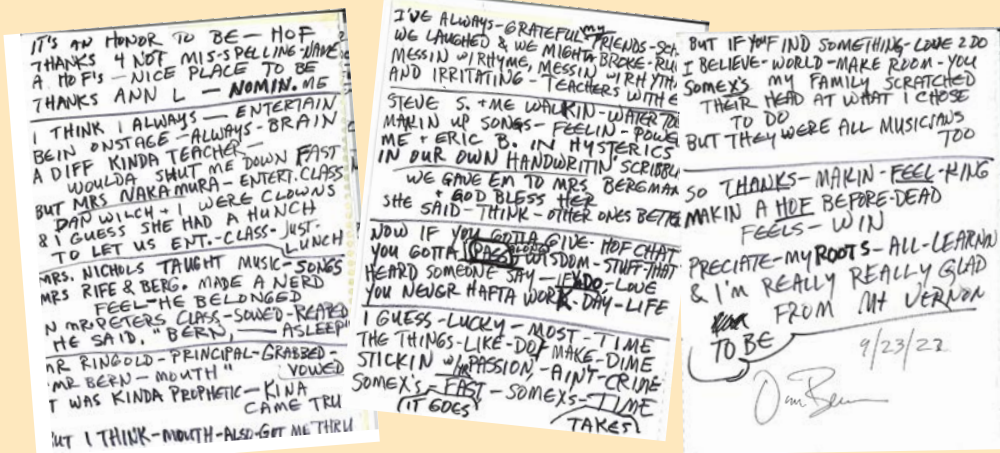 IT'S AN HONOR TO BE — HOF
THANKS 4 NOT MIS-SPELLING-NAME
A HOF'S — NICE PLACE TO BE
THANKS ANN L — NOMIN. ME
I THINK I ALWAYS — ENTERTAIN
BEIN ONSTAGE - ALWAYS - BRAIN
A DIFF KINDA TEACHER —
WOULDA SHUT ME DOWN FAST
BUT MRS NAKAMURA - ENTERT. CLASS
DAN WILCH + I WERE CLOWNS
& I GUESS SHE HAD A HUNCH
TO LET US ENT.-CLASS-JUST-
LUNCH
MRS. NICHOLS TAUGHT MUSIC-SONGS
MRS RIFE & BERG. MADE A NERD
FEEL-HE BELONGED
N MR. PETERS CLASS-SOWED-REAPED
HE SAID, "BERN, —— ASLEEP"
MR RINGOLD-PRINCIPAL-GRABBED-
VOWED
"MR BERN — MOUTH"
T WAS KINDA PROPHETIC — KINA
CAME TRU
UT I THINK-MOUTH-ALSO-GOT ME THRU
I'VE ALWAYS-GRATEFUL my FRIENDS-SCH
WE LAUGHED & WE MIGHTA BROKE-RUL
MESSIN W/RHYME, MESSIN W/RHYTH
AND IRRITATING - TEACHERS WITH E
STEVE S. + ME WALKIN-WATER TO
MAKIN UP SONGS - FEELIN - POWE
ME + ERIC B. IN HYSTERICS
IN OUR OWN HANDWRITIN' SCRIBBL
WE GAVE EM TO MRS BERGMAN
+ GOD BLESS HER
SHE SAID-THINK-OTHER ONES BETTE
NOW IF YOU GOTTA GIVE-HOF CHAT
YOU GOTTA PASS ALONG WISDOM-STUFF-THAT
HEARD SOMEONE SAY — IF DO, LOVE
YOU NEVER HAFTA WORK-DAY-LIFE
I GUESS-LUCKY-MOST-TIME
THE THINGS-LIKE-DO, MAKE-DIME
STICKIN W/ PASSION, -AIN'T-CRIME
SOMEX'S-FAST, -SOMEXS-TIME
(IT GOES)
TAKES
BUT IF YOU FIND SOMETHING-LOVE 2 DO
I BELIEVE-WORLD-MAKE ROOM-YOU
SOMEX'S MY FAMILY SCRATCHED
THEIR HEAD AT WHAT I CHOSE
TO DO
BUT THEY WERE ALL MUSICIANS
TOO
SO THANKS-MAKIN-FEEL-KING
MAKIN A HOF BEFORE-DEAD
FEELS-WIN
PRECIATE-MY ROOTS-ALL-LEARNIN
& I'M REALLY REALLY GLAD
FROM MT VERNON
TO BE
9/23/22
Dan Bern